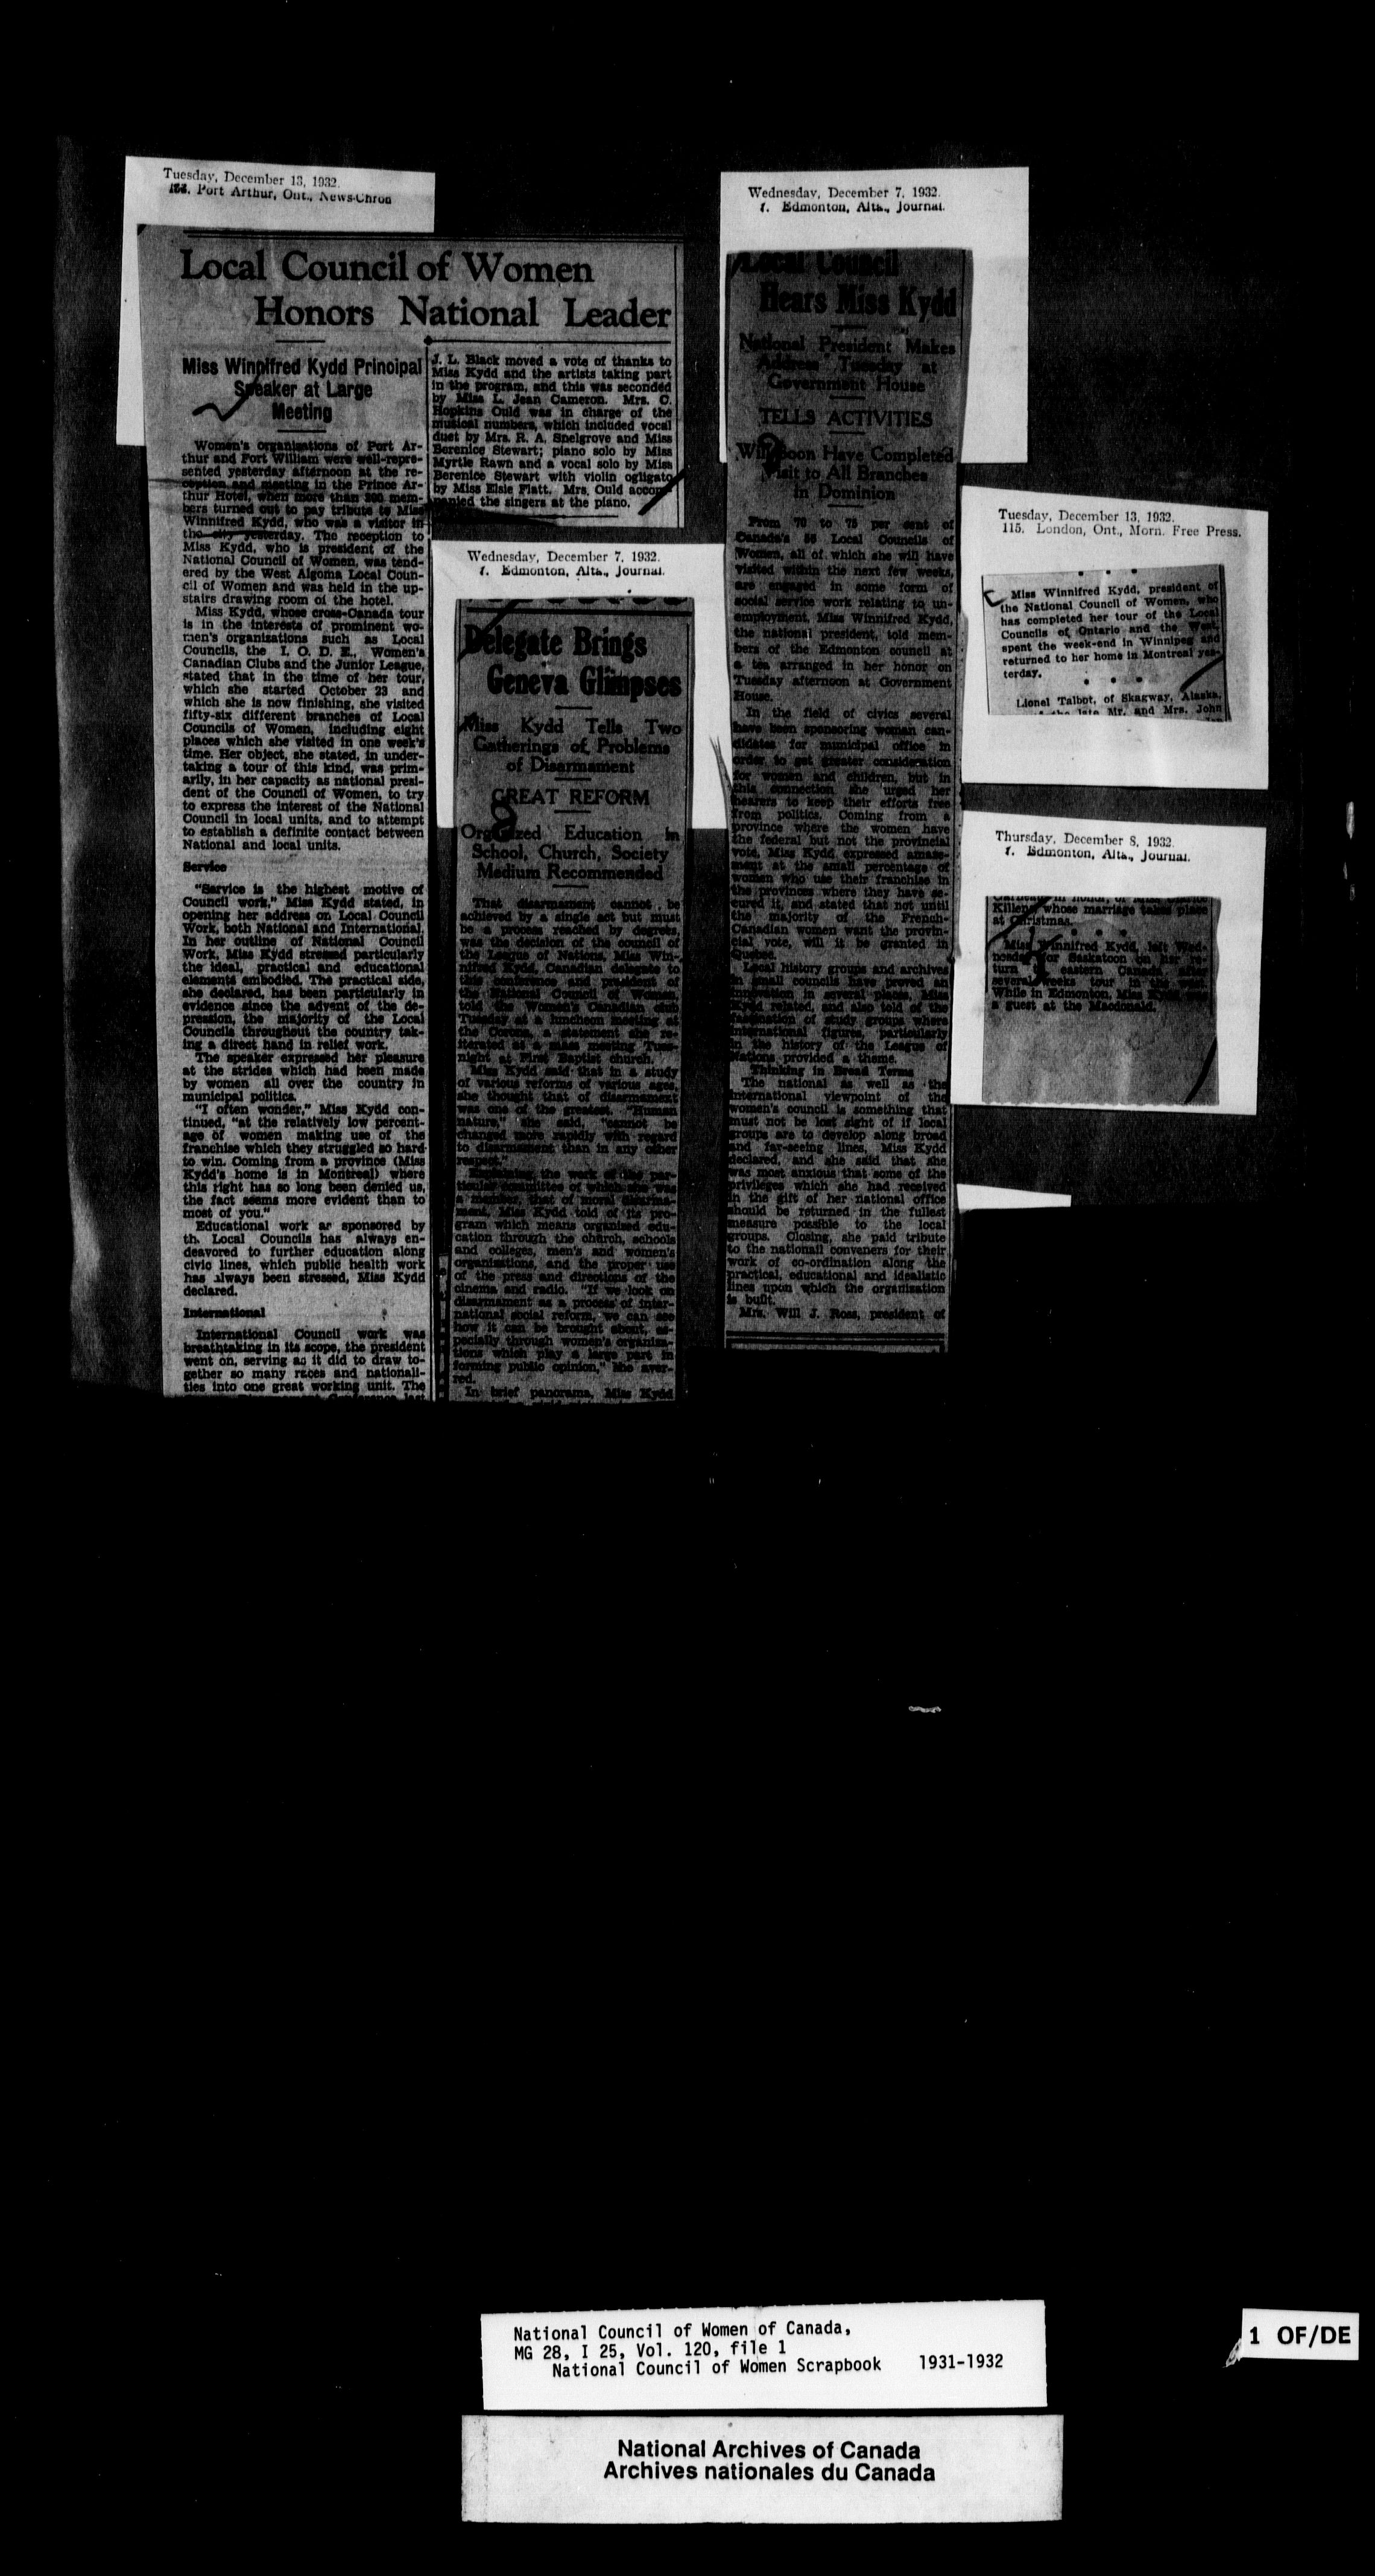 Tuesday, December 13, 1932.
Port Arthur, Ont., News-Chron
Local Council of Women
Honors National Leader
Miss Winnifred Kydd Principal
Speaker at Large
Meeting
Women's organizations of Port Ar-
thur and Fort William were well-repre-
sented yesterday afternoon at the re-
ception and meeting in the Prince Ar-
thur Hotel, when more than 300 mem-
bers turned out to pay tribute to Miss
Winnifred Kydd, who was a visitor in
the city yesterday. The reception to
Miss Kydd, who is president of the
National Council of Women, was tend-
ered by the West Algoma Local Coun-
cil of Women and was held in the up-
stairs drawing room of the hotel.
Miss Kydd, whose cross-Canada tour
is in the interests of prominent wo-
men's organizations such as Local
Councils, the I. O. D. E., Women's
Canadian Clubs and the Junior League,
stated that in the time of her tour,
which she started October 23 and
which she is now finishing, she visited
fifty-six different branches of Local
Councils of Women, including eight
places which she visited in one week's
time. Her object, she stated, in under-
taking a tour of this kind, was prim-
arily, in her capacity as national presi-
dent of the Council of Women, to try
to express the interest of the National
Council in local units, and to attempt
to establish a definite contact between
National and local units.
Service
"Service is the highest motive of
Council work," Miss Kydd stated, in
opening her address on Local Council
Work, both National and International.
In her outline of National Council
Work, Miss Kydd stressed particularly
the ideal, practical and educational
elements embodied. The practical side,
she declared, has been particularly in
evidence since the advent of the de-
pression, the majority of the Local
Councils throughout the country tak-
ing a direct hand in relief work.
The speaker expressed her pleasure
at the strides which had been made
by women all over the country in
municipal politics.
"I often wonder," Miss Kydd con-
tinued, "at the relatively low percent-
age of women making use of the
franchise which they struggled so hard
to win. Coming from a province (Miss
Kydd's home is in Montreal) where
this right has so long been denied us,
the fact seems more evident than to
most of you."
Educational work as sponsored by
th. Local Councils has always en-
deavored to further education along
civic lines, which public health work
has always been stressed, Miss Kydd
declared.
International
International Council work was
breathtaking in its scope, the president
went on, serving as it did to draw to-
gether so many races and nationali-
ties into one great working unit. The
J. L. Black moved a vote of thanks to
Miss Kydd and the artists taking part
in the program, and this was seconded
by Miss L. Jean Cameron. Mrs. C.
Hopkins Ould was in charge of the
musical numbers, which included vocal
duet by Mrs. R. A. Snelgrove and Miss
Berenice Stewart; piano solo by Miss
Myrtle Rawn and a vocal solo by Miss
Berenice Stewart with violin ogligato
by Miss Elsie Flatt. Mrs. Ould accom-
panied the singers at the piano.
Wednesday, December 7, 1932.
1. Edmonton, Alta., Journal.
Delegate Brings
Geneva Glimpses
Miss Kydd Tells Two
Gatherings of Problems
of Disarmament
GREAT REFORM
Organized Education in
School, Church, Society
Medium Recommended
That disarmament cannot be
achieved by a single act but must
be a process reached by degrees,
was the decision of the council of
the League of Nations, Miss Win-
nifred Kydd, Canadian delegate to
this conference and president of
the National Council of Women,
told the Women's Canadian club
Tuesday at a luncheon meeting at
the Corona, a statement she re-
iterated at a mass meeting Tues-
night at First Baptist church.
Miss Kydd said that in a study
of various reforms of various ages,
she thought that of disarmament
was one of the greatest. "Human
nature," she said, "cannot be
changed more rapidly with regard
to disarmament than in any other
respect."
the work of the par-
ticular committee of which she was
a member, that of moral disarma-
ment, Miss Kydd told of its pro-
gram which means organized edu-
cation through the church, schools
and colleges, men's and women's
organizations, and the proper use
of the press and directions of the
cinema and radio. "If we look on
disarmament as a process of inter-
national social reform, we can see
how it can be brought about, es-
pecially through women's organiza-
tions which play a large part in
forming public opinion," she aver-
red.
In brief panorama, Miss Kydd
Wednesday, December 7, 1932.
1. Edmonton, Alta., Journal.
Local Council
Hears Miss Kydd
National President Makes
Address Tuesday at
Government House
TELLS ACTIVITIES
Will Soon Have Completed
Visit to All Branches
in Dominion
From 70 to 75 per cent of
Canada's 56 Local Councils of
Women, all of which she will have
visited within the next few weeks,
are engaged in some form of
social service work relating to un-
employment, Miss Winnifred Kydd,
the national president, told mem-
bers of the Edmonton council at
a tea arranged in her honor on
Tuesday afternoon at Government
House.
In the field of civics several
have been sponsoring woman can-
didates for municipal office in
order to get greater consideration
for women and children, but in
this connection she urged her
hearers to keep their efforts free
from politics. Coming from a
province where the women have
the federal but not the provincial
vote, Miss Kydd expressed amaze-
ment at the small percentage of
women who use their franchise in
the provinces where they have se-
cured it, and stated that not until
the majority of the French-
Canadian women want the provin-
cial vote, will it be granted in
Quebec.
Local history groups and archives
in small councils have proved an
in several places, Miss
Kydd related, and also told of the
of study groups where
international figures, particularly
in the history of the League of
Nations provided a theme.
Thinking in Broad Terms
The national as well as the
international viewpoint of the
women's council is something that
must not be lost sight of if local
groups are to develop along broad
and far-seeing lines, Miss Kydd
declared, and she said that she
was most anxious that some of the
privileges which she had received
in the gift of her national office
should be returned in the fullest
measure possible to the local
groups. Closing, she paid tribute
to the nationall conveners for their
work of co-ordination along the
practical, educational and idealistic
lines upon which the organization
is built.
Mrs. Will J. Ross, president of
Tuesday, December 13, 1932.
115. London, Ont., Morn. Free Press.
Miss Winnifred Kydd, president of
the National Council of Women, who
has completed her tour of the Local
Councils of Ontario and the West,
spent the week-end in Winnipeg and
returned to her home in Montreal yes-
terday.
Lionel Talbot, of Skagway, Alaska,
the late Mr. and Mrs. John
Thursday, December 8, 1932.
1. Edmonton, Alta., Journal.
Killen, whose marriage takes place
at Christmas.
Miss Winnifred Kydd, left Wed-
nesday for Saskatoon on her re-
turn to eastern Canada after
several weeks tour in the west.
While in Edmonton, Miss Kydd was
a guest at the Macdonald.
National Council of Women of Canada,
MG 28, I 25, Vol. 120, file 1
National Council of Women Scrapbook 1931-1932
1 OF/DE
National Archives of Canada
Archives nationales du Canada